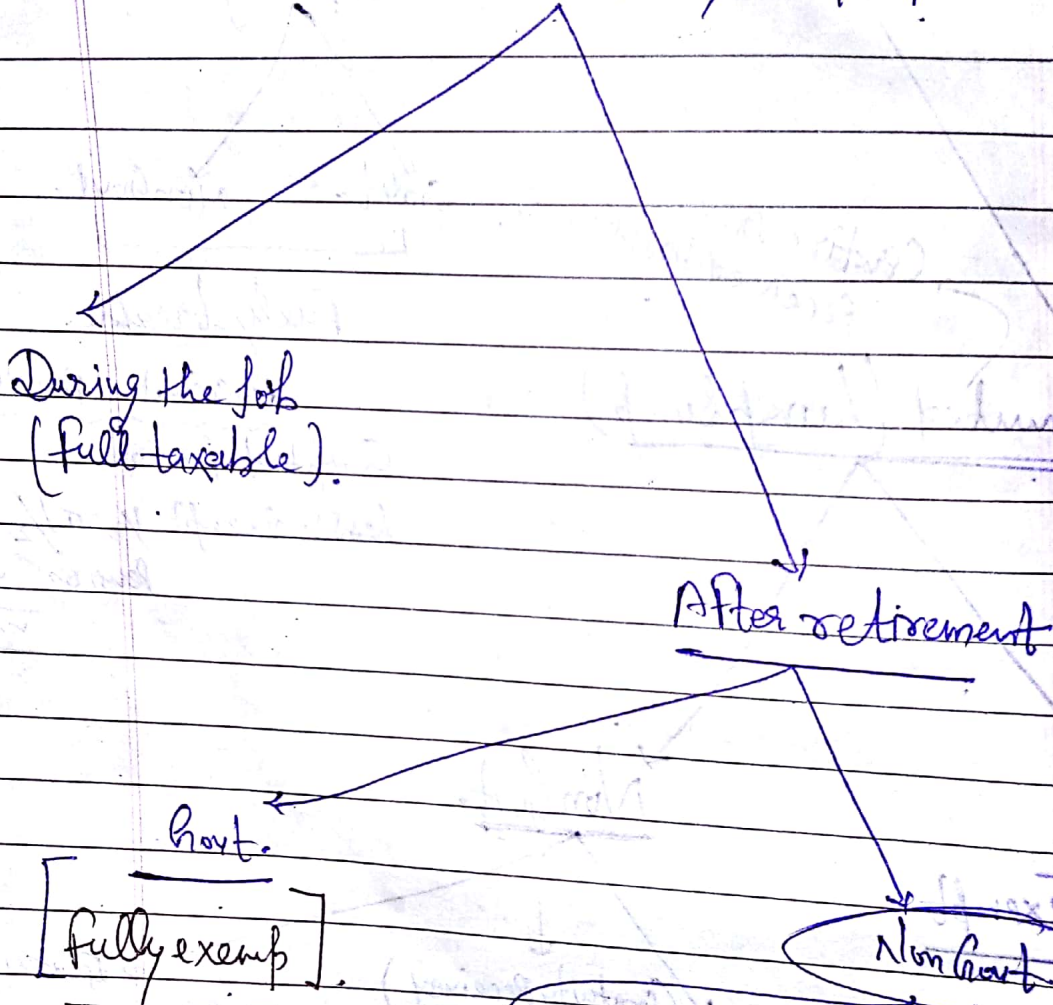 During the job
(full taxable).
After retirement
Govt.
[fully exemp].
Non Govt